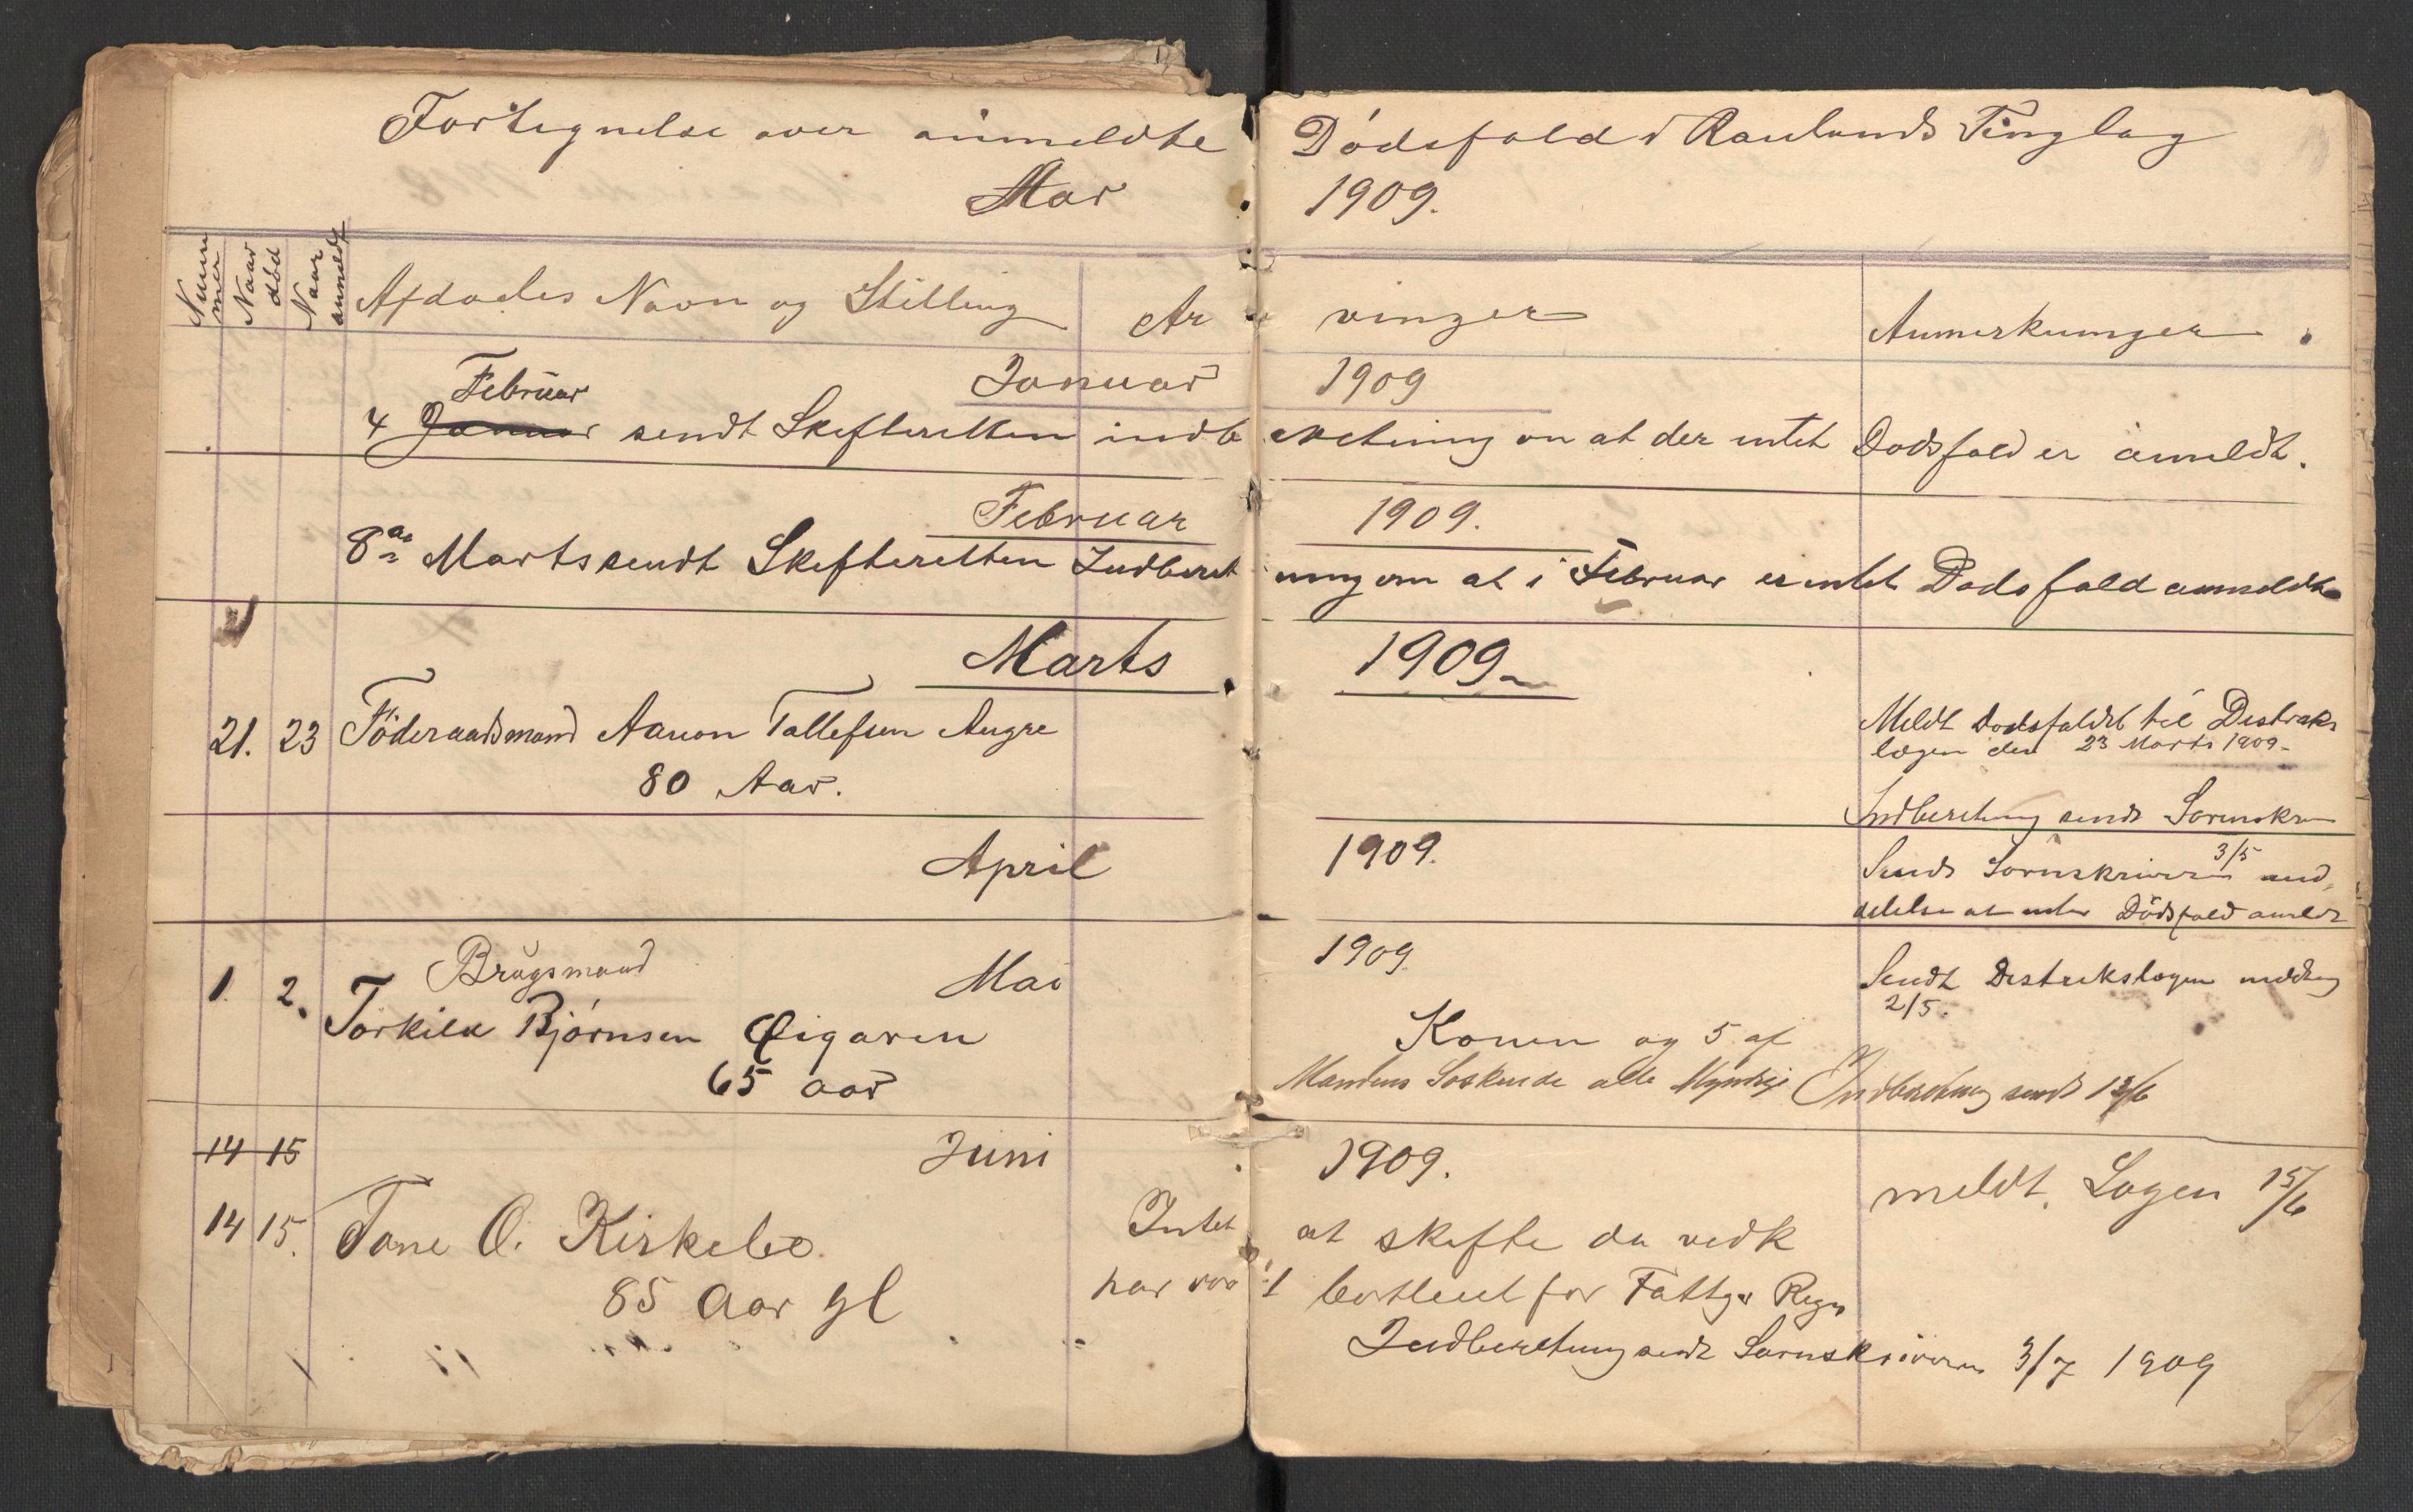 Fortegnelse over anmeldte Dødsfald i Raulands Tinglag
Aar 1909.
Nummer
Naar død
Naar anmeldt
Afdødes Navn og Stilling
Arvinger
Anmerkninger.
Januar 1909
Februar
4 Januar sendt Skifteretten indberetning om at der intet Dødsfald er anmeldt.
Februar 1909.
8de Marts sendt Skifteretten Indberetning om at i Februar er intet Dødsfald anmeldt
Marts 1909
21. 23 Föderaadsmand Aanon Tallefsen
80 Aar.
Meldt Dødsfaldet til Distrikts
lægen den 23 Marts 1909-
Indberetning sendt Sorenskr
April 1909.
Sendt Sorenskriveren 3/5 med
delelse at intet Dödsfald anmeldt
Mai 1909
1. 2. Brugsmand
Torkild Bjørnsen
65 aar
Konen og 5 af
Mandens Søskende alle Myndige
Sendt Distriktslægen melding
2/5.
Indberetning sendt 12/6
Juni 1909.
14 15
14 15. Tone O. Kirkebø.
85 Aar gl
Intet at skifte da vedk
har været forsørget for Fattigv Regn
meldt Lægen 15/6
Indberetning sendt Sorenskriveren 3/7 1909